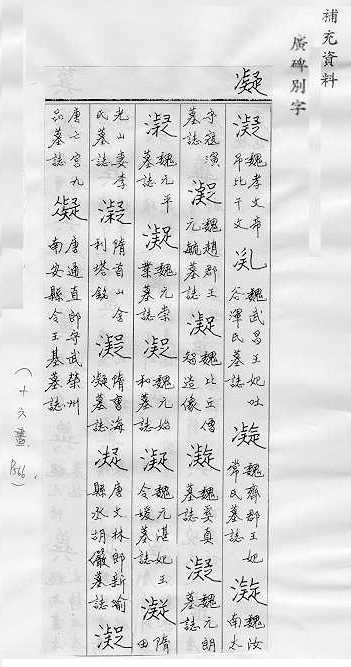 補充資料
廣碑別字
凝
凝 魏孝文帝弔比干文 魏武昌王妃吐谷渾氏墓誌 凝 魏齊郡王妃常氏墓誌 凝 魏汝南太
守寇演墓誌 凝 魏趙郡王元毓墓誌 凝 魏比丘僧智造像 凝 魏奚真墓誌 凝 魏元朗墓誌
凝 魏元平墓誌 凝 魏元崇業墓誌 凝 魏元始和墓誌 凝 魏元湛妃王令媛墓誌 凝 隋田
光山妻李氏墓誌 凝 隋首山舍利塔銘 凝 隋曹海凝墓誌 凝 唐文林郎新喻縣丞胡儼墓誌 凝
唐亡宮九品墓誌 凝 唐通直郎守武榮州南安縣令王基墓誌
(十六畫 P566)